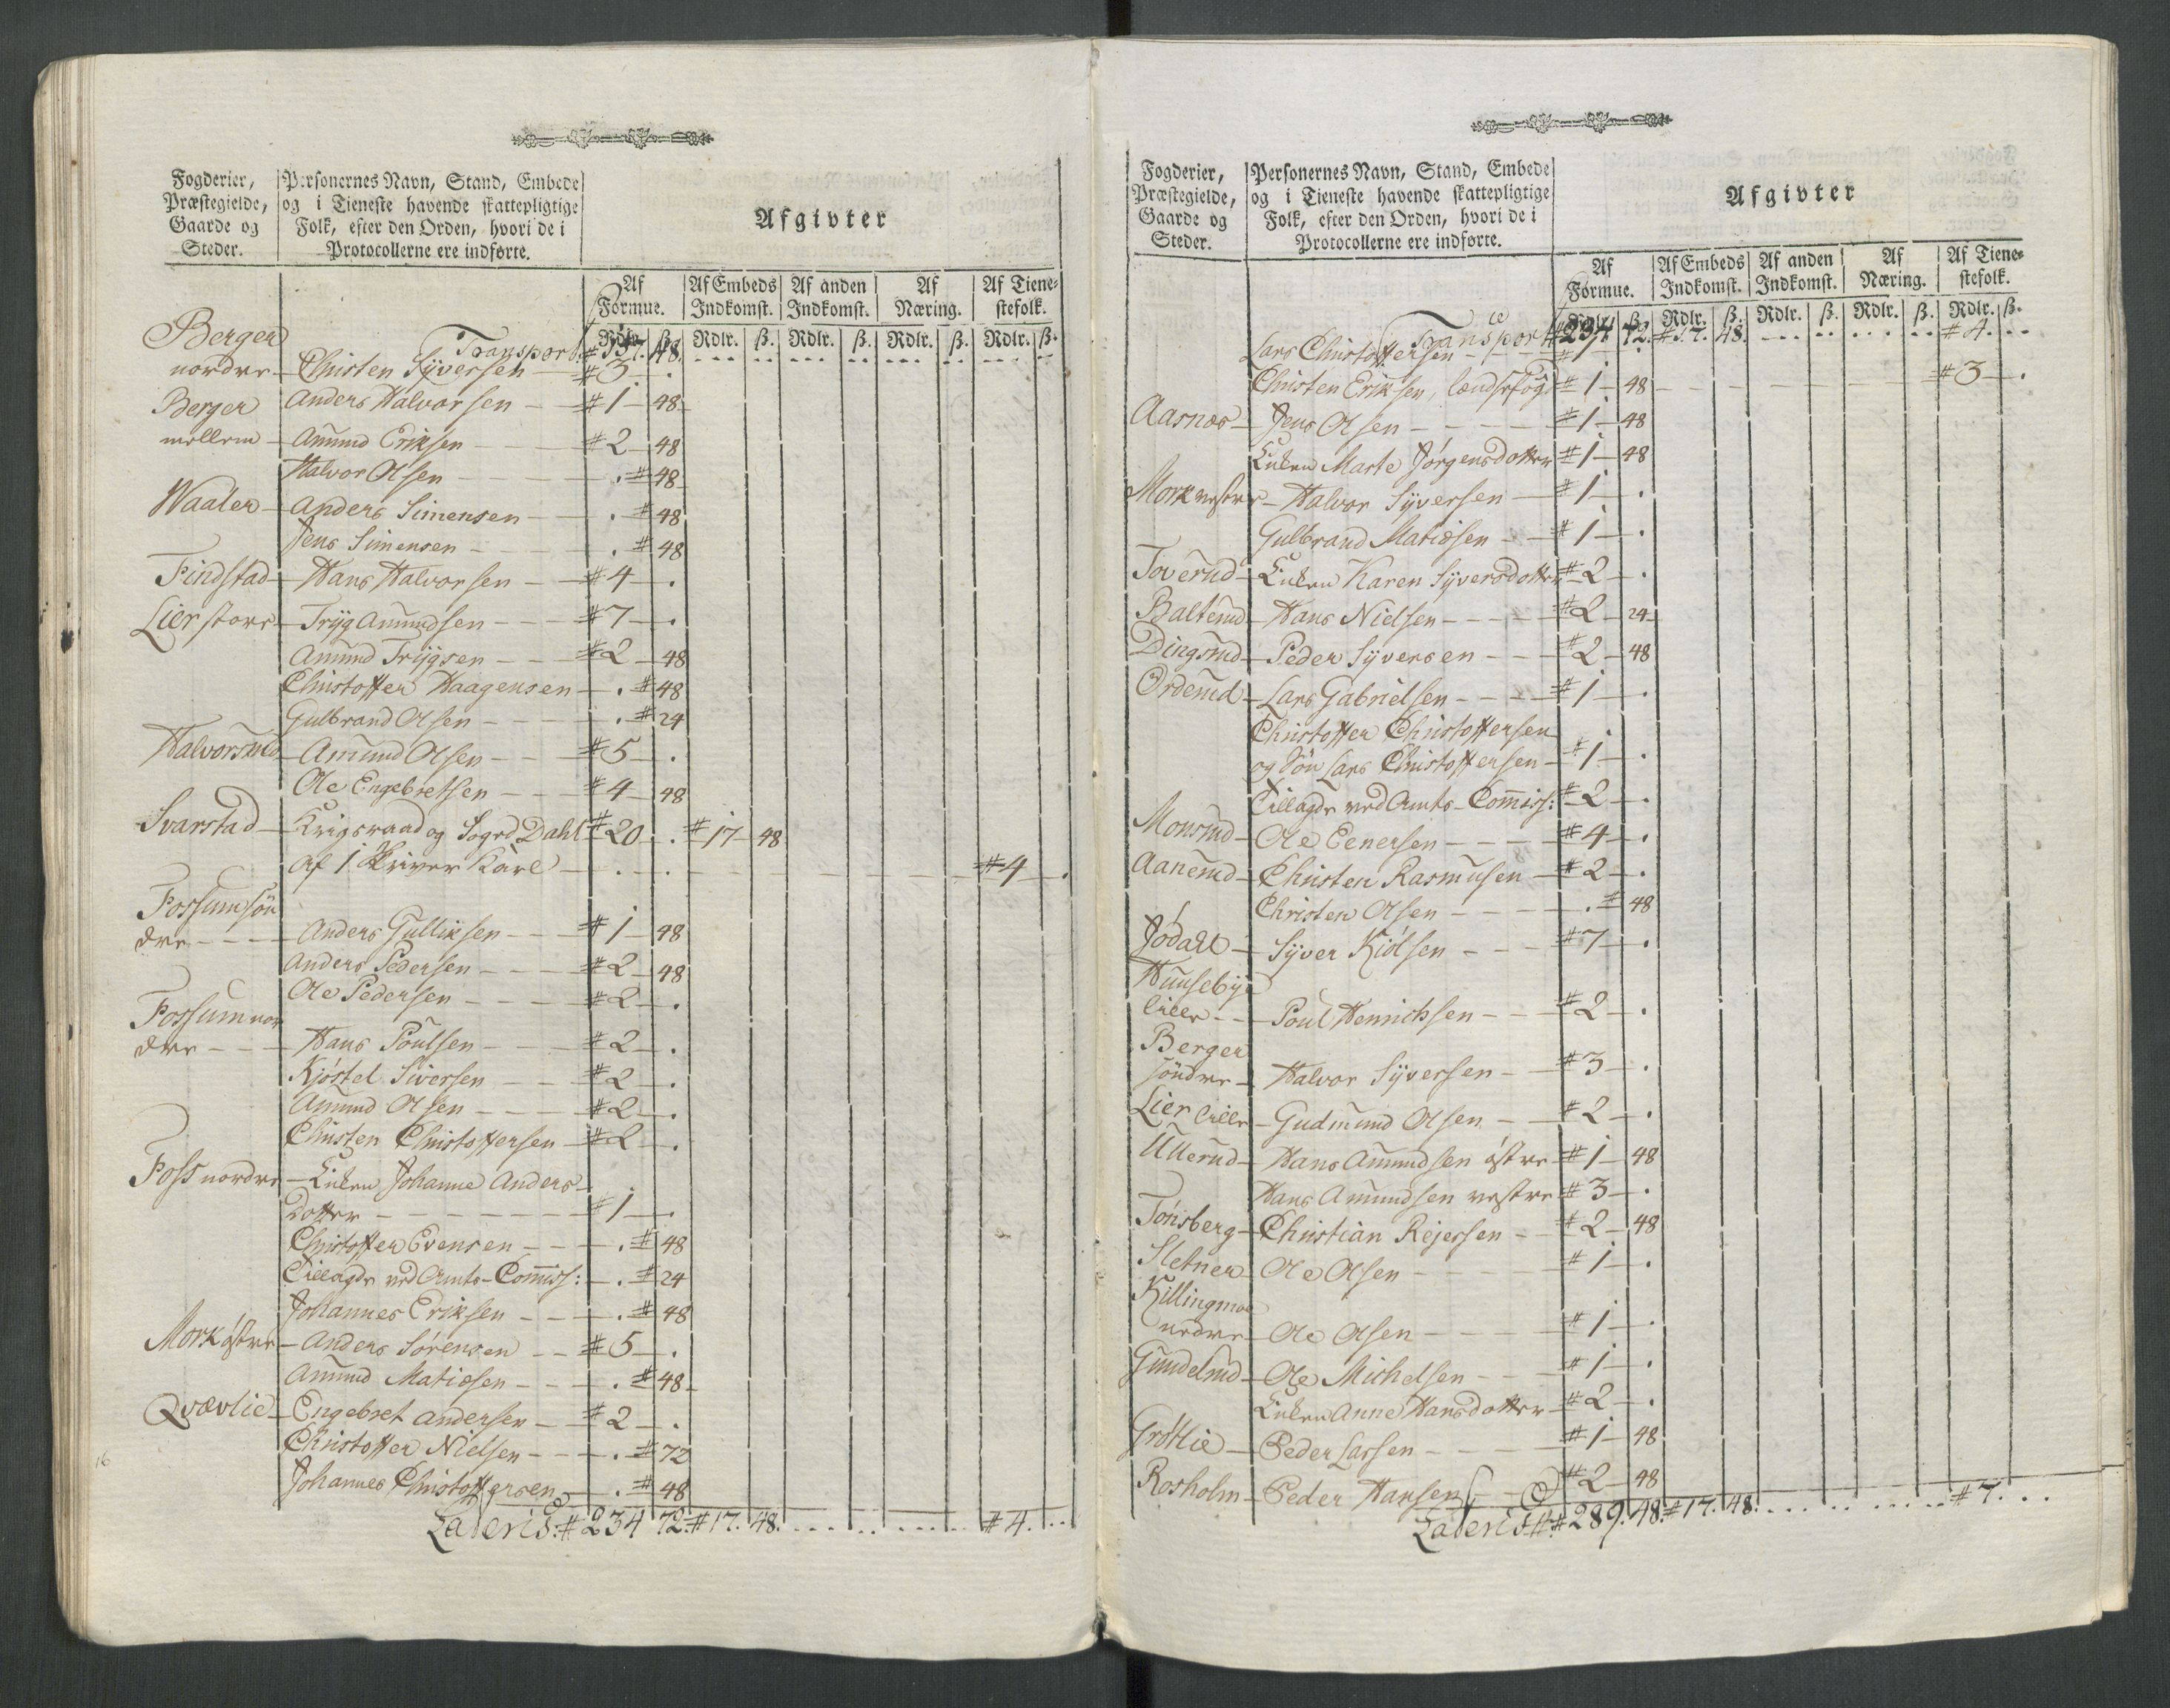 Fogderier, Præstegielde, Gaarde og Steder.
Personernes Navn, Stand, Embede og i Tieneste havende skattepligtige Folk, efter den Orden, hvori de i Protocollerne ere indførte.
Afgivter
Af Formue. Af Embeds Indkomst. Af anden Indkomst. Af Næring. Af Tienestefolk.
Rdlr. ß. Rdlr. ß. Rdlr. ß. Rdlr. ß. Rdlr. ß.
Transport 48.
Berger nordre - Christen Syversen - # 3 - .
Berger mellem - Anders Halvorsen - # 1 - 48
Amund Eriksen - # 2 - 48
Halvor Olsen - . # 48
Waaler - Anders Simensen - . # 48
Jens Simensen - . # 48
Findstad - Hans Halvorsen - # 4 - .
Lier store - Tryg Amundsen - # 7 - .
Amund Trygsen - # 2 - 48
Christoffer Haagensen - . # 48
Gulbrand Olsen - . # 24
Halvorsrud - Amund Olsen - # 5 - .
Ole Engebretsen - # 4 - 48
Svarstad - Krigsraad og Sogrd Dahl # 20 . # 17 - 48
Af 1 Skriver Karl - # 4 - .
Fossum søndre - Anders Gulliksen - # 1 - 48
Anders Pedersen - # 2 - 48
Ole Pedersen - # 2 - .
Fossum nordre - Hans Poulsen - # 2 - .
Kjøstel Siversen - # 2 - .
Amund Olsen - # 2 - .
Christen Christoffersen - # 2 - .
Foss nordre - Enken Johanne Anders-
dotter - # 1 - .
Christoffer Evensen - . # 48
Tillagde ved Amts-Com̄iss: - . # 24
Johannes Eriksen - . # 48
Mork østre - Anders Sørensen - # 5 - .
Amund Matiesen - . # 48
Qvævlie - Engebret Andersen - # 2 - .
Christoffer Nielsen - . # 72
Johannes Christoffersen - . # 48
Lateris: # 234 72. # 17. 48. # 4.
16
Fogderier, Præstegielde, Gaarde og Steder.
Personernes Navn, Stand, Embede og i Tieneste havende skattepligtige Folk, efter den Orden, hvori de i Protocollerne ere indførte.
Afgivter
Af Formue. Af Embeds Indkomst. Af anden Indkomst. Af Næring. Af Tienestefolk.
Rdlr. ß. Rdlr. ß. Rdlr. ß. Rdlr. ß. Rdlr. ß.
Transport # 234 72. # 17. 48. # 4.
Lars Christoffersen - # 1 - .
Christen Eriksen, - # 1 - 48 # 3 - .
Aasnæs - Jens Olsen - # 1 - 48
Enken Marte Jørgensdotter # 1 - 48
Mork vestre - Halvor Syversen - # 1 - .
Gulbrand Matiesen - # 1 - .
Toverud - Enken Karen Syversdotter # 2 - .
Balterud - Hans Nielsen - # 2 - 24
Dingsrud - Peder Syversen - # 2 - 48
Orderud - Lars Gabrielsen - # 1 - .
Christoffer Christoffersen
og Søn Lars Christoffersen - # 1 - .
Tillagde ved Amts-Com̄iss: # 2 - .
Monsrud - Ole Eenersen - # 4 - .
Aanerud - Christen Rasmusen - # 2 - .
Christen Olsen - . # 48
Jødahl - Syver Kiølsen - # 7 - .
Huuseby lille - Poul Henrichsen - # 2 - .
Berger søndre - Halvor Syversen - # 3 - .
Lier lille - Gudmund Olsen - # 2 - .
Ullerud - Hans Amundsen østre # 1 - 48
Hans Amundsen vestre # 3 - .
Tønsberg - Christian Rejersen - # 2 - 48
Sletner - Ole Olsen - # 1 - .
Killingmoe nedre - Ole Olsen - # 1 - .
Gundelrud - Ole Michelsen - # 1 - .
Enken Anne Hansdotter # 2 - .
Grøtlie - Peder Larsen - # 1 - 48
Rosholm - Peder Hansen # 2 - 48
Lateris # 289. 48. # 17. 48. # 7.